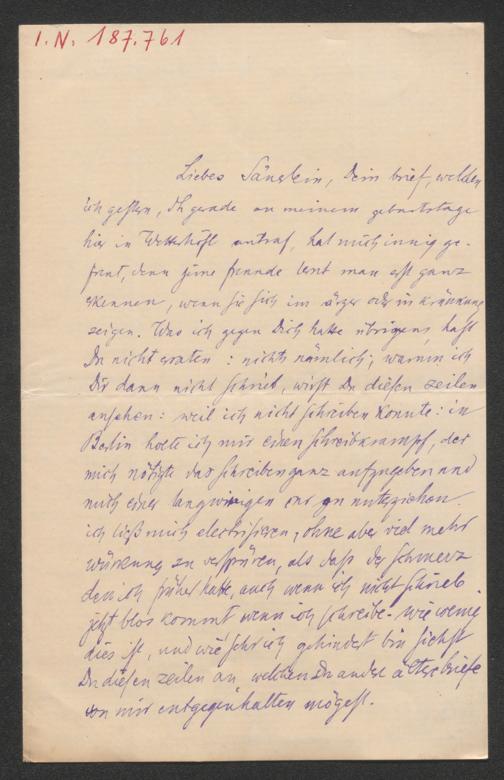 I.N. 187.761
Liebes Sänslein, Dein brief, welchen
ich gestern, Ih gerade an meinem geburtstage
hier in antraf, hat mich innig ge-
freut, denn seine freunde lernt man erst ganz
erkennen, wenn sie sich im ärger oder in kränkung
zeigen. Was ich gegen Dich hatte übrigens, hast
Du nicht erraten: nichts nämlich; warum ich
Dir dann nicht schrieb, wirst Du diesen zeilen
ansehen: weil ich nicht schreiben konnte: in
Berlin holte ich mir einen schreibkrampf, der
mich nötigte das schreiben ganz aufzugeben und
mich einer langwierigen cur zu unterziehen.
ich ließ mich electrisieren, ohne aber viel mehr
würkung zu verspüren, als dass der schmerz
den ich früher hatte, auch wenn ich nicht schrieb
jetzt blos kommt wenn ich schreibe. wie wenig
dies ist, und wie sehr ich gehindert bin siehst
Du diesen zeilen an welchen Du andre ältere briefe
von mir entgegenhalten mögest.